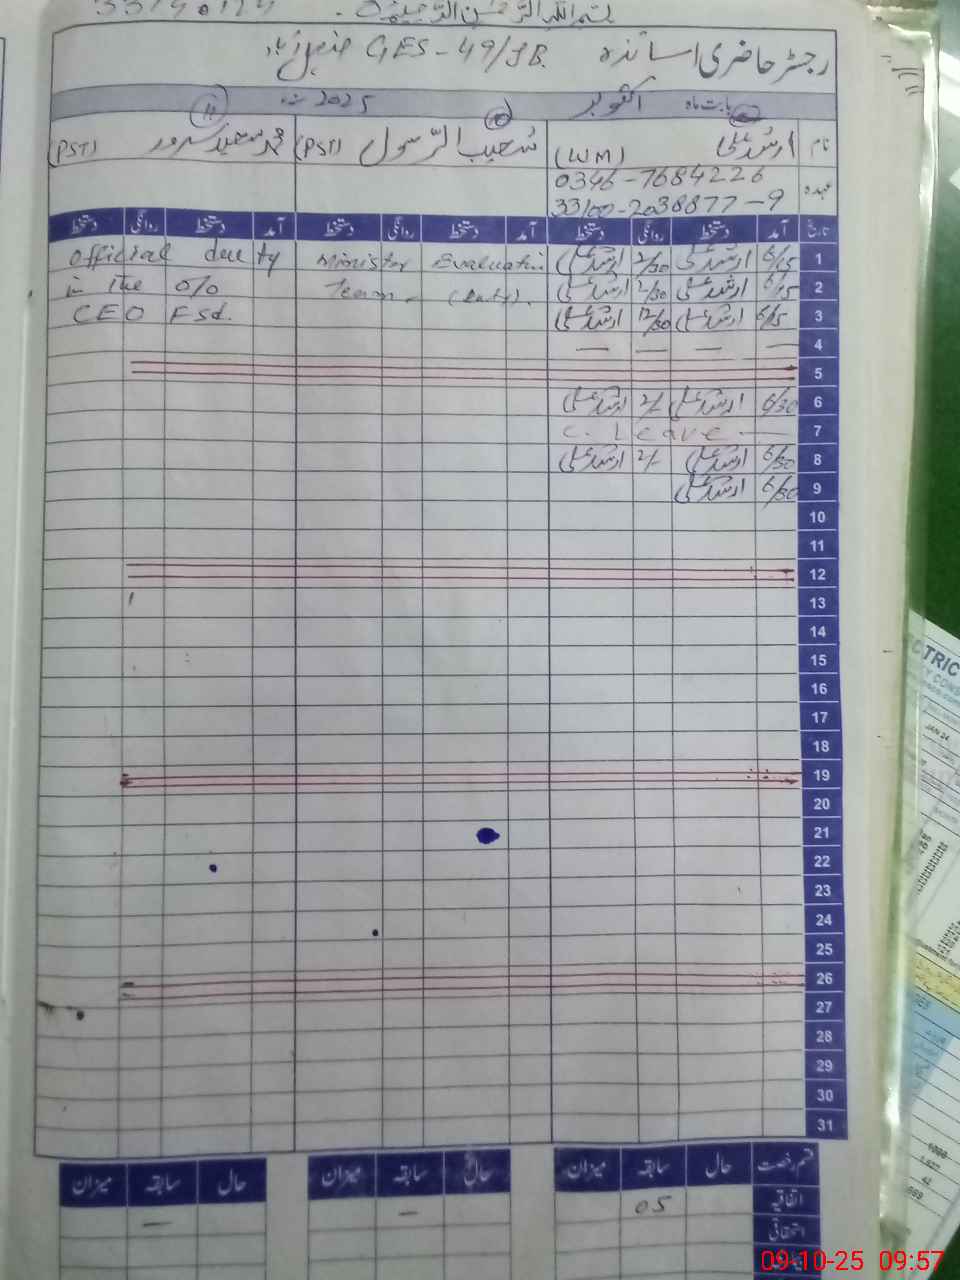 بسم اللہ الرحمٰن الرحیم
رجسٹر حاضری اساتذہ GES-49/JB.
بابت ماہ اکتوبر 2025
نام ارشد علی (WM) 10 شعیب الرسول (PST) 11 محمد سعید سرور (PST)
عہدہ 0346-7684226
33100-2038877-9
تاریخ آمد دستخط روانگی دستخط آمد دستخط روانگی دستخط آمد دستخط روانگی دستخط
1 6/15 ارشد علی 2/30 ارشد علی Minister Evaluation official duty
2 6/15 ارشد علی 2/30 ارشد علی Team - (Duty). in the O/O
3 6/15 ارشد علی 12/30 ارشد علی CEO Fsd.
4 — — — —
5
6 6/30 ارشد علی 2/- ارشد علی
7 C. Leave —
8 6/30 ارشد علی 2/- ارشد علی
9 6/30 ارشد علی
10
11
12
13
14
15
16
17
18
19
20
21
22
23
24
25
26
27
28
29
30
31
قسم رخصت حال سابقہ میزان حال سابقہ میزان حال سابقہ میزان
اتفاقیہ 05 — —
استحقاقی
CTRIC
JAN 24
09-10-25 09:57